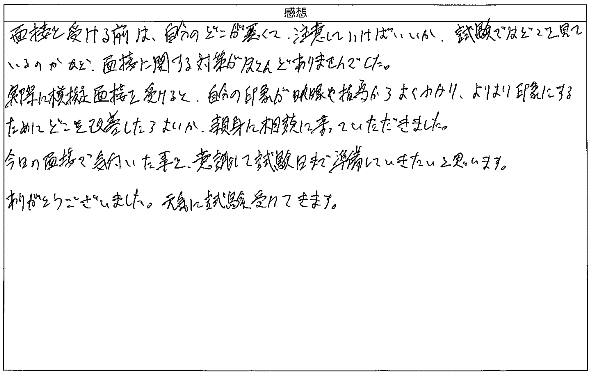 感想
面接を受ける前は、自分のどこが悪くて、注意していけばいいか、試験ではどこを見て
いるのかなど、面接に関する対策がほとんどありませんでした。
実際に模擬面接を受けると、自分の印象が映像や指摘からよくわかり、よりよい印象にする
ためにどこを改善したらよいか、親身に相談に乗っていただきました。
今日の面接で気付いた事を、意識して試験日まで準備していきたいと思います。
ありがとうございました。元気に試験受けてきます。